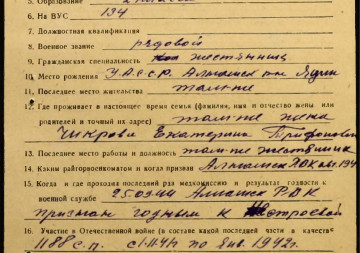 5. Образование
6. На ВУС 134
7. Должностная квалификация
8. Военное звание рядовой
9. Гражданская специальность жестянщик
10. Место рождения У.А.С.С.Р. Алнашск
11. Последнее место жительства там-же
12. Где проживает в настоящее время семья (фамилия, имя и отчество жены или
родителей и точный их адрес) там-же жена
Чикрова Екатерина
13. Последнее место работы и должность там-же жестянщик
14. Каким райгорвоенкоматом и когда призван
15. Когда и где проходил последний раз медкомиссию и результат годности к
военной службе 25.02.44 Алнашск РВК
признан годным к строевой
16. Участие в Отечественной войне (в составе какой последней части в качестве
1188 с.п. с 1.11.41 по янв. 1942г.